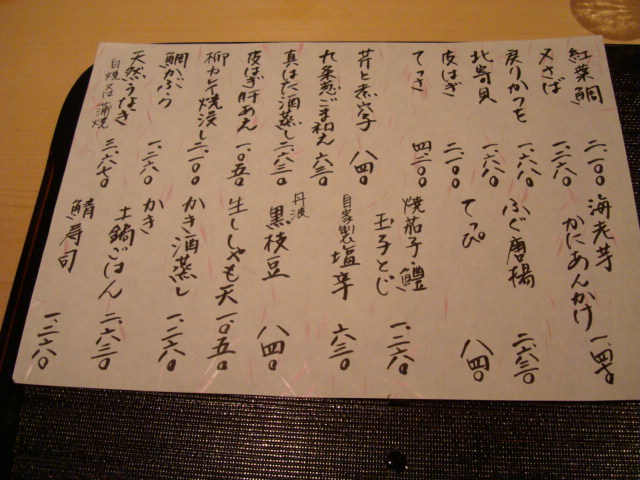 紅葉鯛 二、一〇〇
又さば 一、二六〇
戻りかつを 一、六八〇
北寄貝 一、六八〇
皮はぎ 二、一〇〇
てっさ 四、二〇〇
芹と煮穴子 八四〇
九条葱ごま和え 六三〇
真はた酒蒸し 二、六三〇
皮はぎ肝あえ 一、〇五〇
柳カレイ焼浸し 二、一〇〇
鯛かぶら 一、二六〇
天然うなぎ 白焼又は蒲焼 三、六七〇
海老芋
かにあんかけ 一、四七〇
ふぐ唐揚 二、六三〇
てっぴ 八四〇
焼茄子・鱧
玉子とじ 一、二六〇
自家製塩辛 六三〇
丹波黒枝豆 八四〇
生ししゃも天 一、〇五〇
かき酒蒸し 一、二六〇
かき
土鍋ごはん 二、六三〇
鯖寿司 一、二六〇